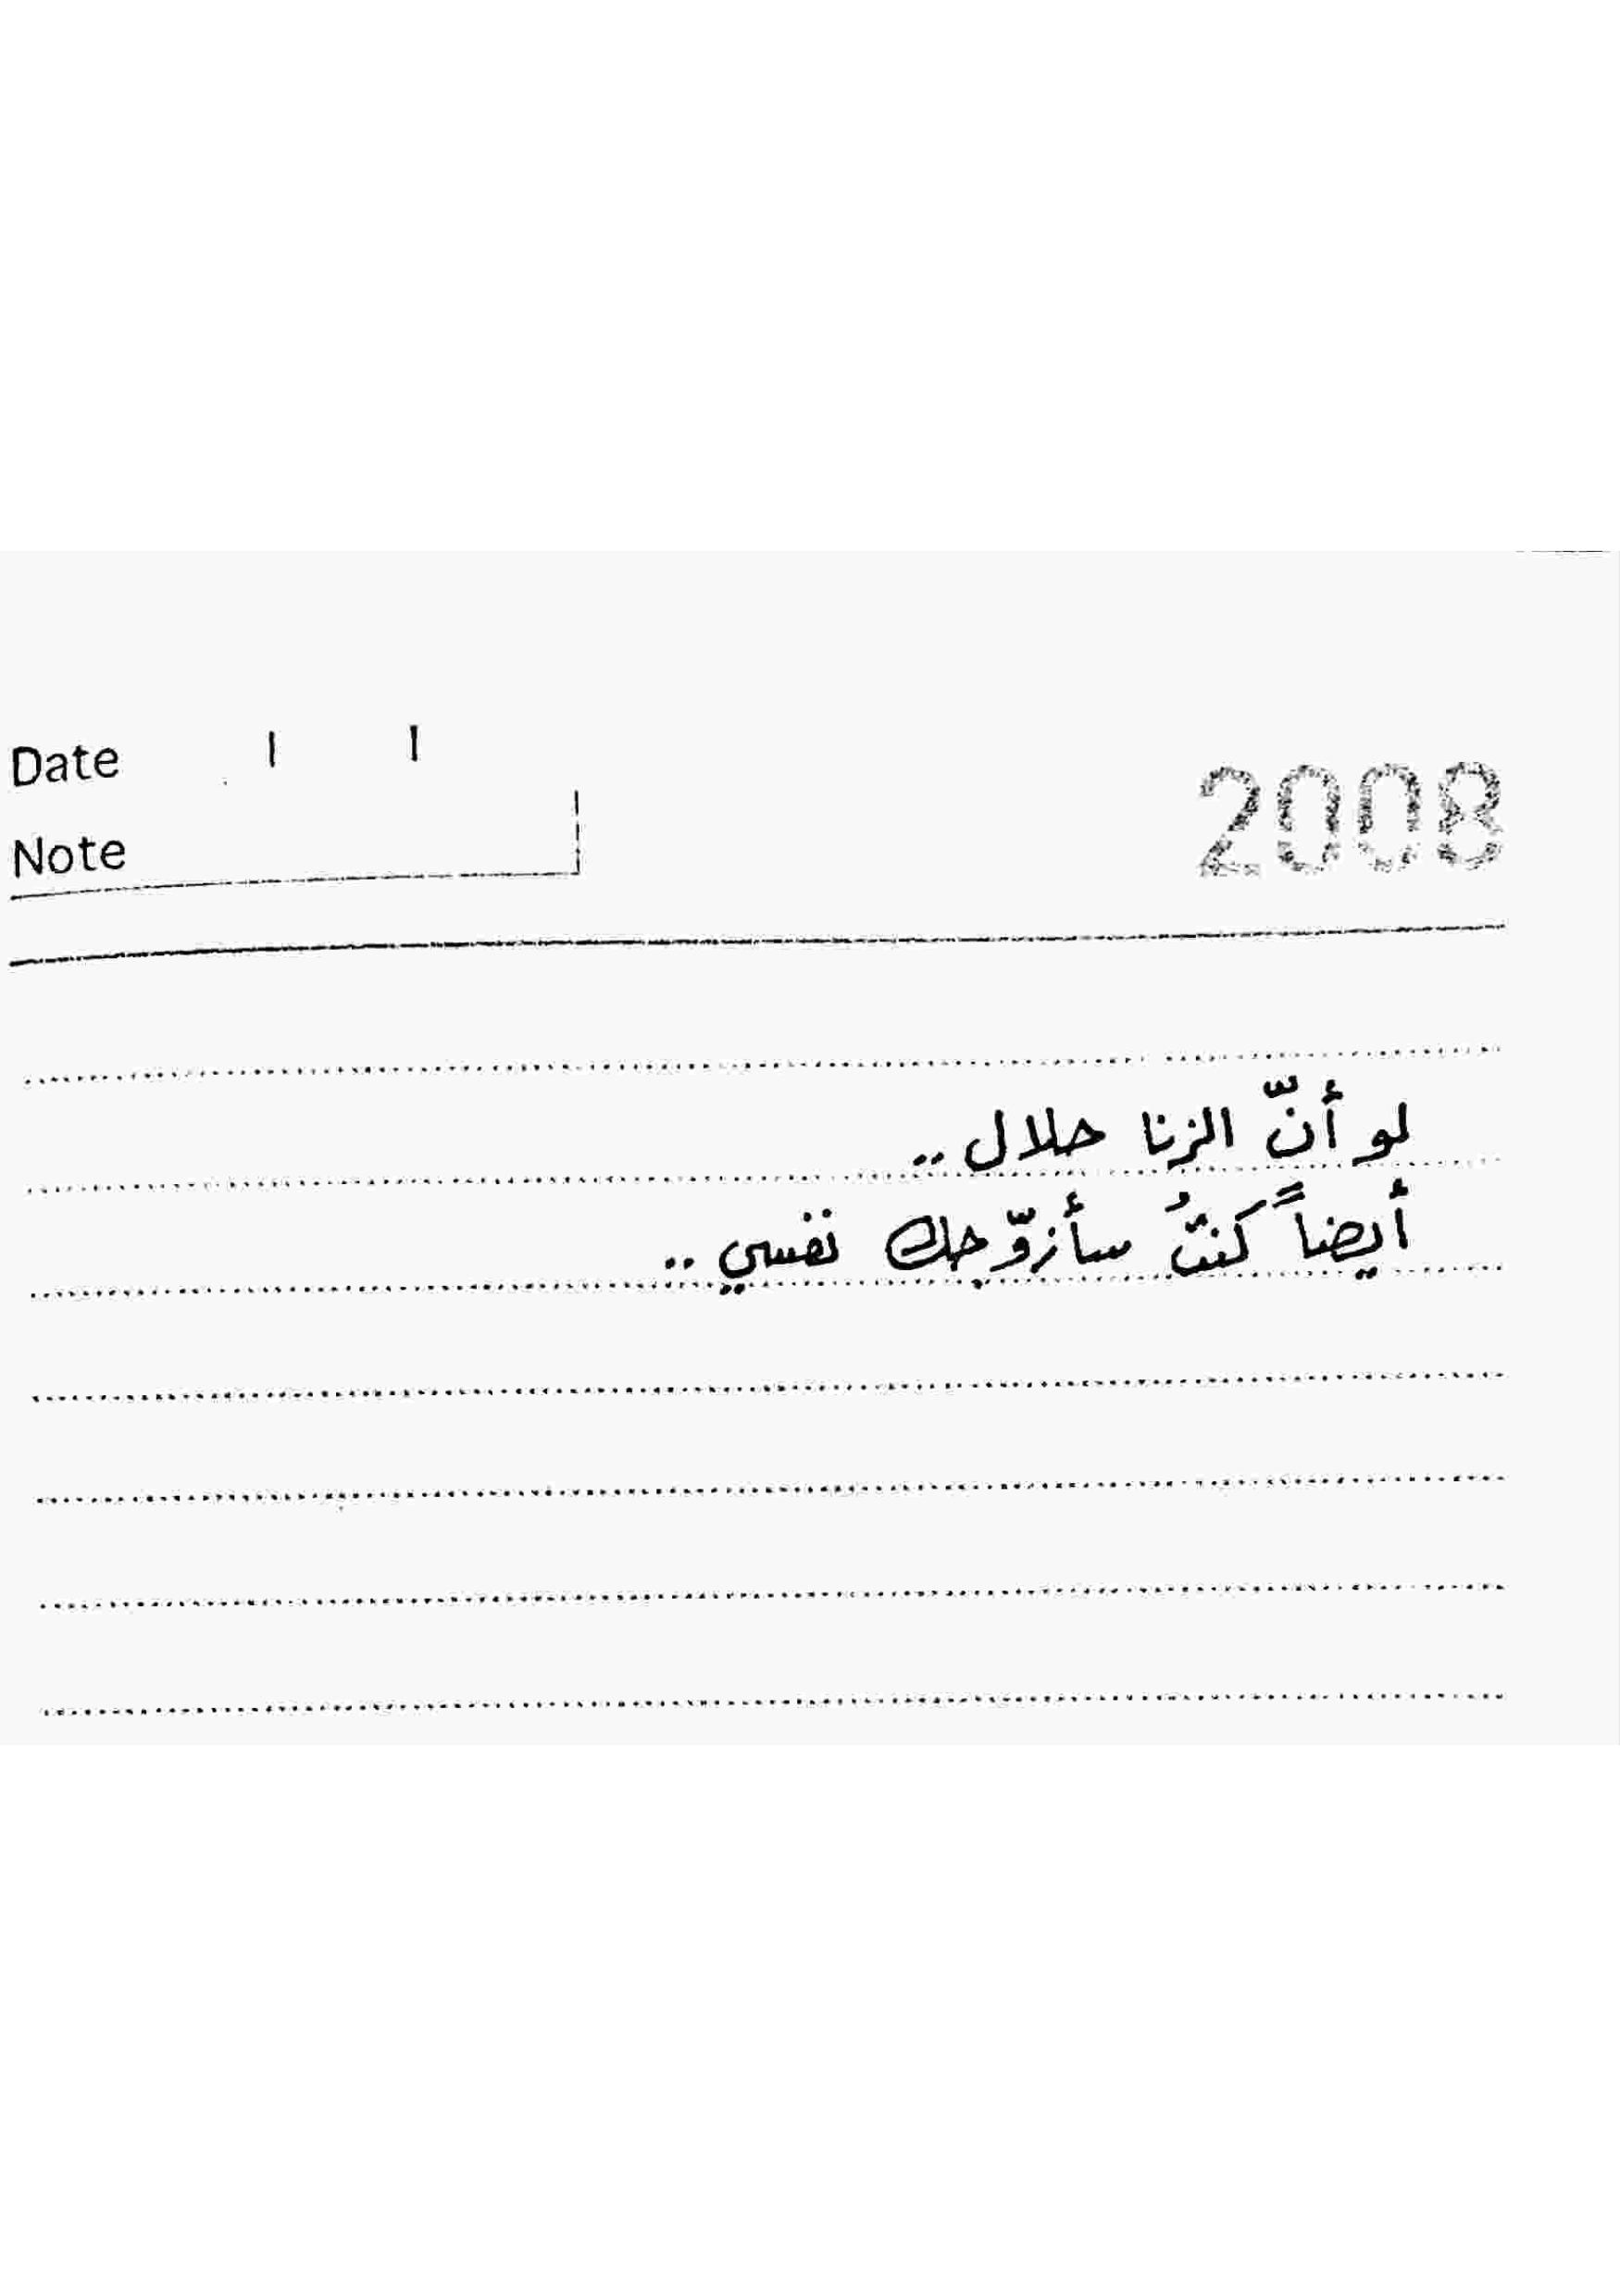 Date / /
2008
Note
لو أنّ الزنا حلال ..
أيضاً كنتُ سأزوّجك نفسي ..